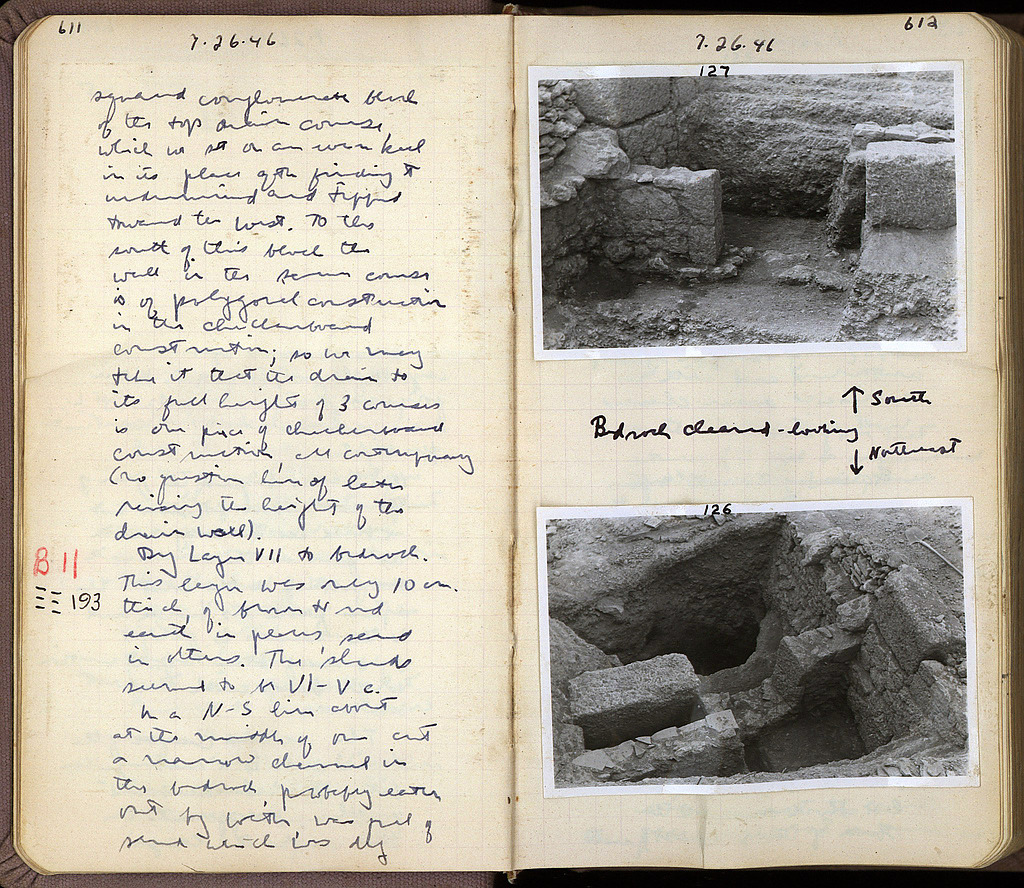 611
7.26.46
squared conglomerate block
of the top drain course,
which we set on an even keel
in its place after finding it
undermined and tipped
toward the west. To the
south of this block the
wall in the same course
is of polygonal construction
in the checkerboard
construction; so we may
take it that the drain to
its full height of 3 courses
is one piece of checkerboard
construction, all contemporary
(no question here of later
raising the height of the
drain wall).
Dug Layer VII to bedrock.
B 11
This layer was only 10 cm.
193
thick, of brown to red
earth in places, sand
in others. The sherds
seemed to be VI-V c.
In a N-S line about
at the middle of our cut
a narrow channel in
the bedrock, probably eaten
out by water, was full of
sand which was dug
612
7.26.46
127
Bedrock cleared - looking
↑ South
↓ Northwest
126